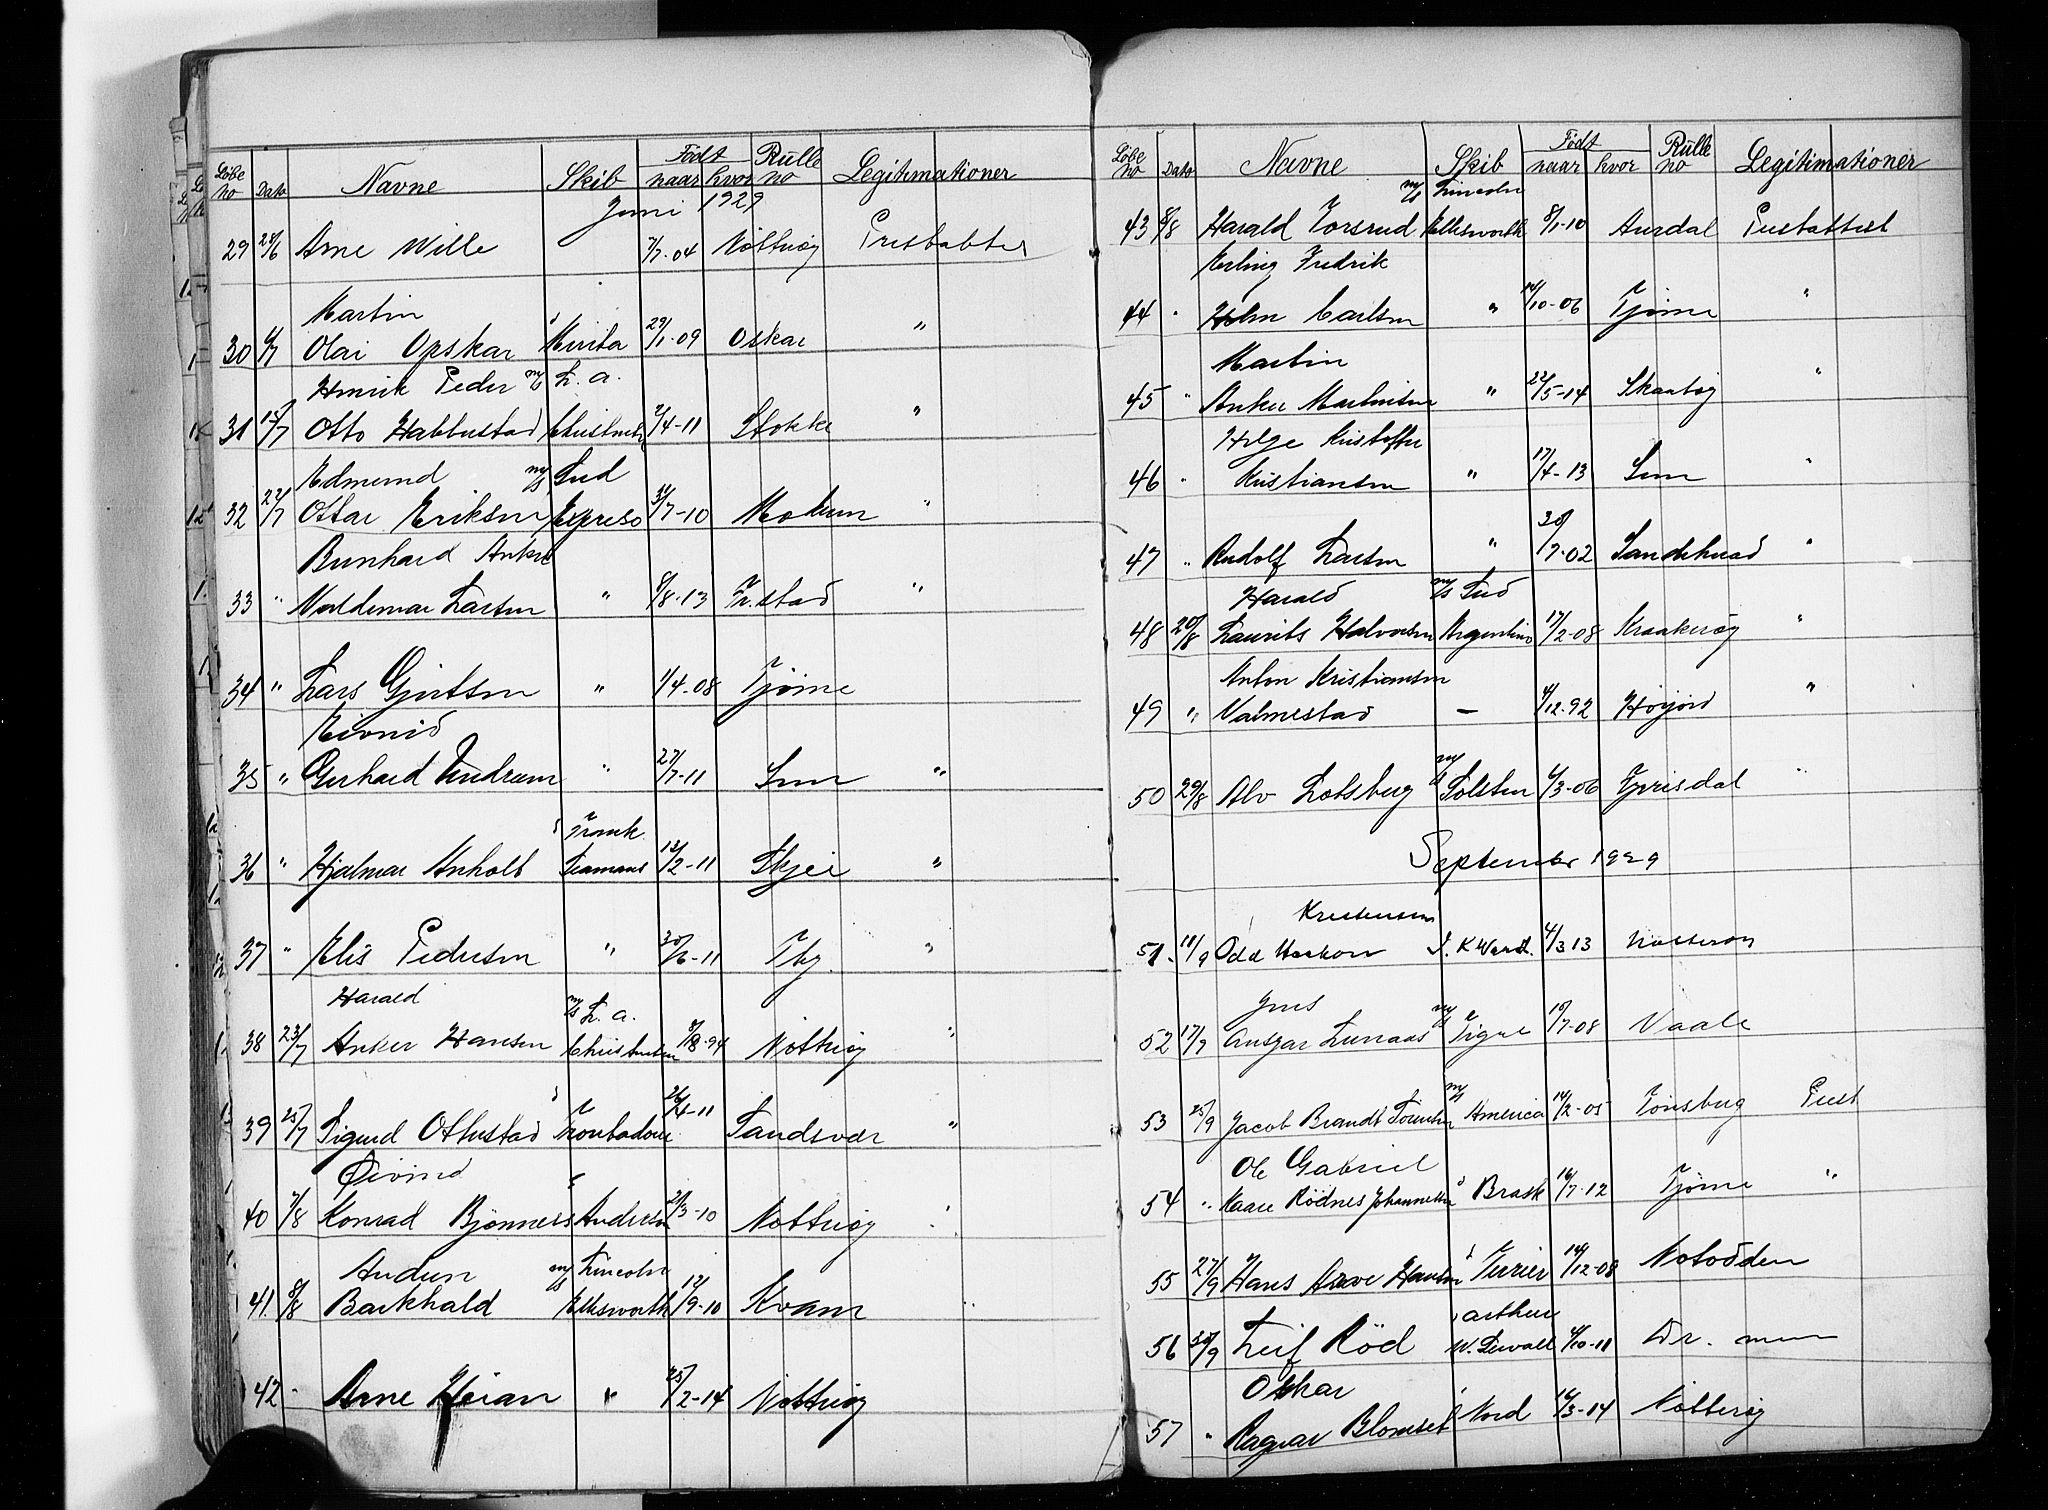 Løbe no Dato Navne Skib Født naar hvor Rulle no Legitimationer
Juni 1929
29 28/6 Arne Wille 7/7-04 Nøtterøy Prestattest
Martin
30 6/7 Olai Opskar s Mirita 29/1-09 Oskar "
Henrik Peder m/s L. A.
31 15/7 Otto Habbestad Christensen 2/4-11 Stokke "
Edmund m/s Sud
32 22/7 Ottar Eriksen Expreso 31/7-10 Modum "
Bernhard Anker
33 " Valdemar Larsen " 8/8-13 Fr.stad "
34 " Lars Gjertsen " 1/4-08 Tjøme
Eivind
35 " Gerhard Undrum " 27/7-11 Sem "
s Frank
36 " Hjalmar Anholt Seamans 12/2-11 Skjei "
37 " Elis Pedersen " 30/6-11 Thy "
Harald m/s L. A.
38 23/7 Anker Hansen Christensen 8/8-94 Nøtterøy "
39 25/7 Sigurd Ottestad s Troubadour 26/4-11 Sandsvær "
Øivind
40 7/8 Konrad Bjønness Anderson 21/3-10 Nøtterøy "
Audun m/s Lincoln
41 8/8 Barkhald Ellsworth 12/9-10 Kvam "
42 - Arne Heian " 25/2-14 Nøtterøy
Løbe no Dato Navne Skib Født naar hvor Rulle no Legitimationer
m/s Lincoln
43 8/8 Harald Torsrud Ellesworth 8/1-10 Aurdal Prestattest
Erling Fredrik
44 " Holm Carlsen " 14/10-06 Tjøme "
Martin
45 " Anker Martinsen " 22/5-14 Skaatøy "
Helge Kristoffer
46 " Kristiansen " 17/4-13 Sem "
47 " Rudolf Larsen " 30/7-02 Sandeherad "
Harald m/s Sud
48 20/8 Laurits Halvorsen Argentino 17/2-08 Kraakerøy "
Anton Kristiansen
49 " Valmestad - 4/12-92 Høijord "
50 29/8 Alv Lotsberg m/s Solsten 6/3-06 Fyrisdal "
September 1929
Kristensen
51. 10/9 Odd Haakon J. K Ward. 4/3 13 Nøtterøy
Jens
52 17/9 Ansgar Lunaas m/s Tigre 10/7-08 Vaale
53 25/9 Jacob Brandt Sørensen m/s America 14/2-05 Tønsberg Prest
Ole Gabriel
54 " Kaare Rødnes Johannessen s Brask 16/7-12 Tjøme "
55 27/9 Hans Arve Hansen s Terrier 14/12-08 Notodden
Arthur
56 30/9 Leif Rød W. Sewall 4/10-11 Dr. men
Oskar
57 " Ragnar Blomset Nord 16/3-14 Nøtterøy